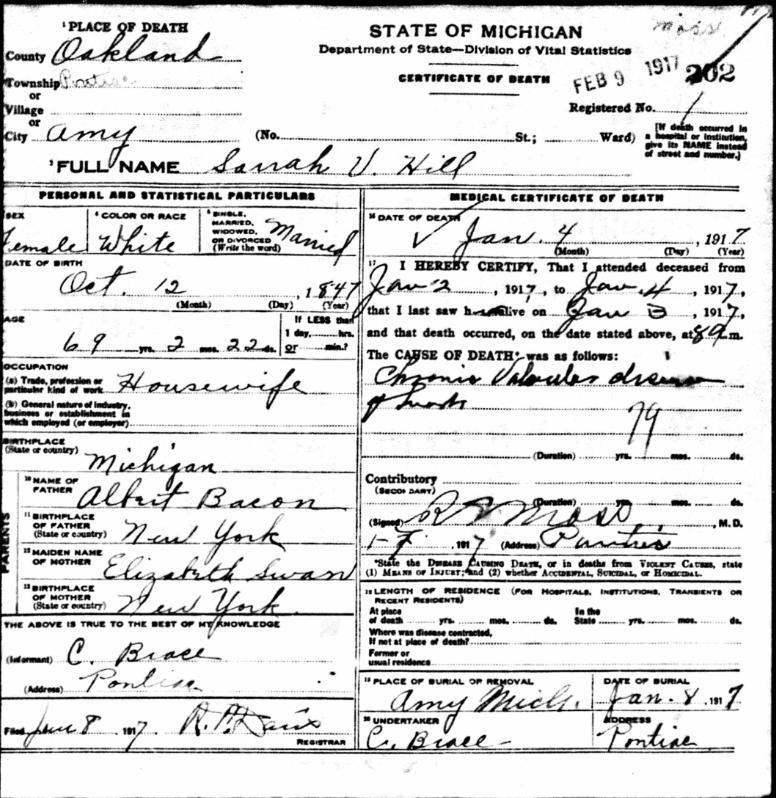 ¹PLACE OF DEATH
County Oakland
Township
or
Village
or
City Amy
STATE OF MICHIGAN
Department of State—Division of Vital Statistics
CERTIFICATE OF DEATH
Moss
FEB 9 1917 202
Registered No. 1
(No. St.; Ward)
[If death occurred in a hospital or institution, give its NAME instead of street and number.]
²FULL NAME Sarrah V. Hill
PERSONAL AND STATISTICAL PARTICULARS
SEX
Female
⁴ COLOR OR RACE
White
⁵ SINGLE, MARRIED, WIDOWED, OR DIVORCED (Write the word)
Married
DATE OF BIRTH
Oct. 12, 1847
(Month) (Day) (Year)
AGE
69 yrs. 2 mos. 22 ds.
If LESS than
1 day, hrs.
or min.?
OCCUPATION
(a) Trade, profession or particular kind of work Housewife
(b) General nature of industry, business or establishment in which employed (or employer)
BIRTHPLACE
(State or country) Michigan
PARENTS
¹⁰ NAME OF FATHER Albert Bacon
¹¹ BIRTHPLACE OF FATHER (State or country) New York
¹² MAIDEN NAME OF MOTHER Elizabeth Swan
¹³ BIRTHPLACE OF MOTHER (State or country) New York
THE ABOVE IS TRUE TO THE BEST OF MY KNOWLEDGE
(Informant) C. Brace
(Address) Pontiac
Filed Jan 8 1917
REGISTRAR
MEDICAL CERTIFICATE OF DEATH
¹⁶ DATE OF DEATH
Jan. 4, 1917
(Month) (Day) (Year)
¹⁷ I HEREBY CERTIFY, That I attended deceased from
Jan 2, 1917, to Jan. 4, 1917,
that I last saw her alive on Jan 3, 1917,
and that death occurred, on the date stated above, at 8 a.m.
The CAUSE OF DEATH* was as follows:
Chronic Valvular disease
of heart
79
(Duration) yrs. mos. ds.
Contributory
(SECONDARY)
(Duration) yrs. mos. ds.
(Signed) Moss, M.D.
1917 (Address) Pontiac
*State the DISEASE CAUSING DEATH, or in deaths from VIOLENT CAUSES, state
(1) MEANS OF INJURY; and (2) whether ACCIDENTAL, SUICIDAL, or HOMICIDAL.
¹⁸ LENGTH OF RESIDENCE (FOR HOSPITALS, INSTITUTIONS, TRANSIENTS OR RECENT RESIDENTS)
At place of death yrs. mos. ds. In the State yrs. mos. ds.
Where was disease contracted,
If not at place of death?
Former or
usual residence
¹⁹ PLACE OF BURIAL OR REMOVAL
Amy Mich.
DATE OF BURIAL
Jan. 8 1917
²⁰ UNDERTAKER
C. Brace
ADDRESS
Pontiac